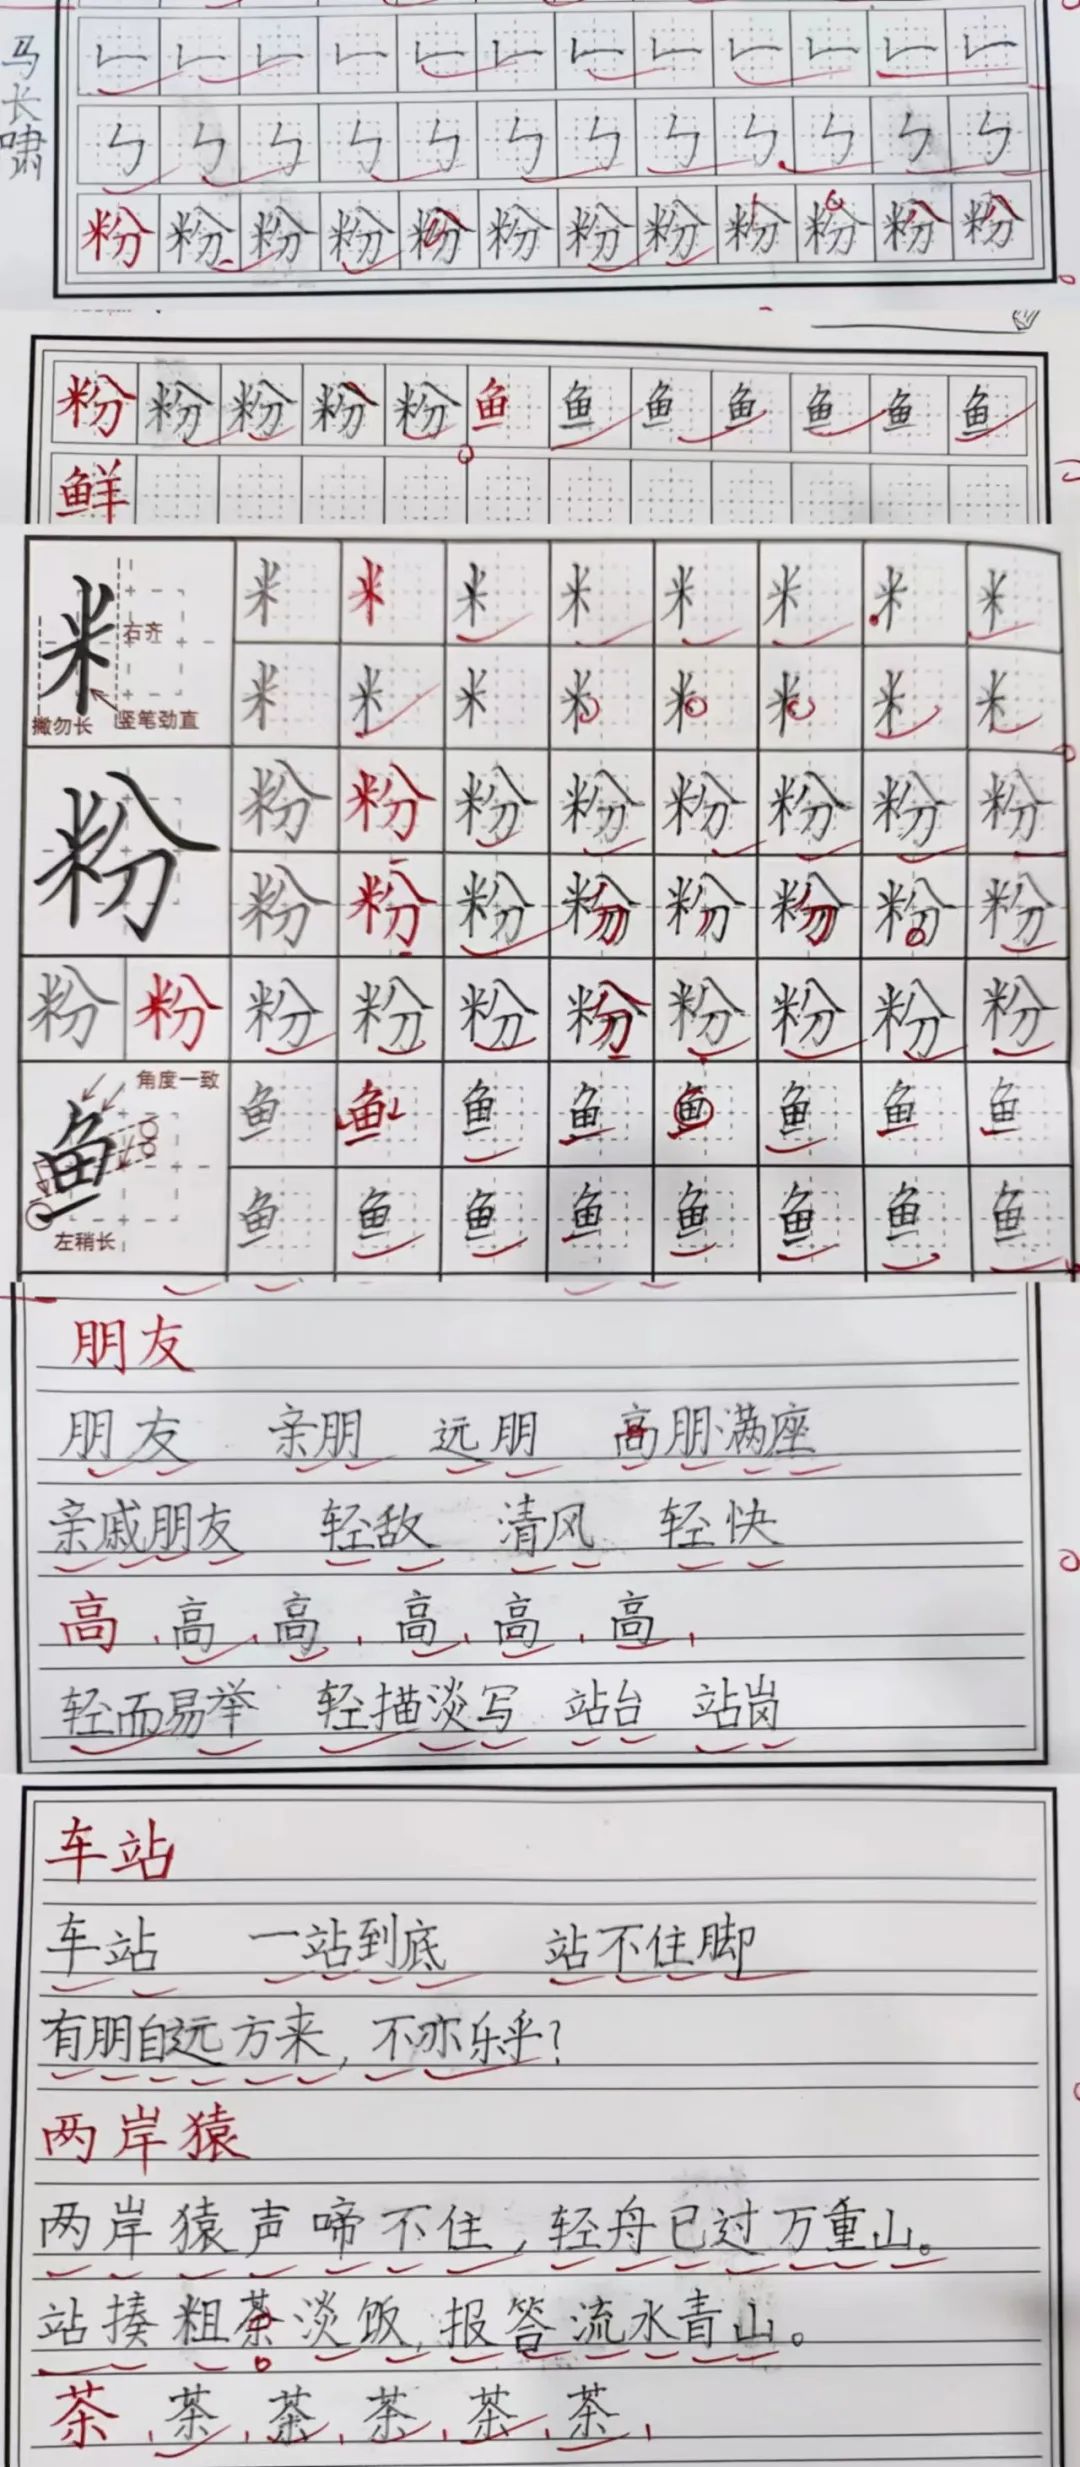 马长啸
粉 粉 粉 粉 粉 粉 粉 粉 粉 粉 粉 粉
粉 粉 粉 粉 粉 鱼 鱼 鱼 鱼 鱼 鱼 鱼
鲜
米 右齐 撇勿长 竖笔劲直 米 米 米 米 米 米 米 米
米 米 米 米 米 米 米 米
粉 粉 粉 粉 粉 粉 粉 粉 粉
粉 粉 粉 粉 粉 粉 粉 粉
粉 粉 粉 粉 粉 粉 粉 粉 粉 粉
鱼 角度一致 左稍长 鱼 鱼 鱼 鱼 鱼 鱼 鱼 鱼
鱼 鱼 鱼 鱼 鱼 鱼 鱼 鱼
朋友
朋友 亲朋 远朋 高朋满座
亲戚朋友 轻敌 清风 轻快
高 高 高 高 高 高
轻而易举 轻描淡写 站台 站岗
车站
车站 一站到底 站不住脚
有朋自远方来,不亦乐乎?
两岸猿
两岸猿声啼不住,轻舟已过万重山。
站揍粗茶淡饭,报答流水青山。
茶 茶 茶 茶 茶 茶